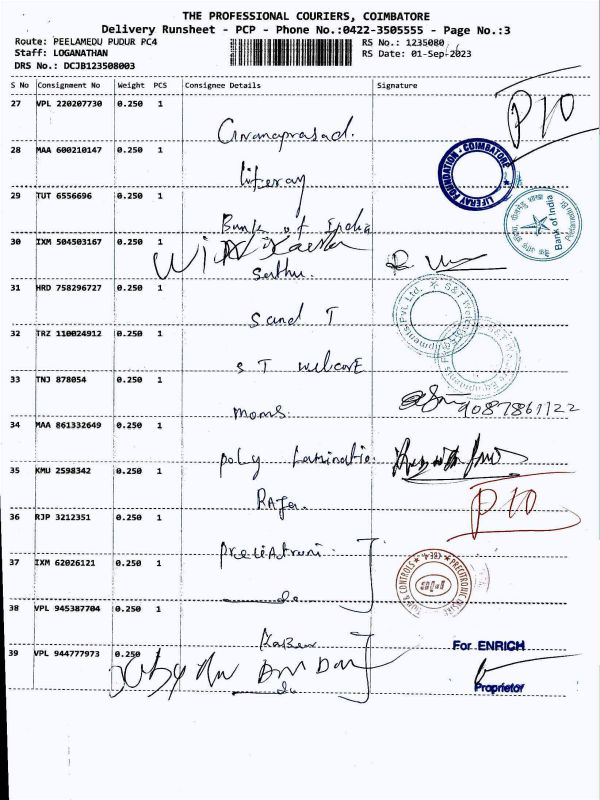 THE PROFESSIONAL COURIERS, COIMBATORE
Delivery Runsheet - PCP - Phone No.:0422-3505555 - Page No.:3
Route: PEELAMEDU PUDUR PC4
RS No.: 1235080
Staff: LOGANATHAN
RS Date: 01-Sep-2023
DRS No.: DCJB123508003
S No Consignment No Weight PCS Consignee Details Signature
27 VPL 220207730 0.250 1
PTO
28 MAA 600210147 0.250 1
LIFERAY FOUNDATION COIMBATORE
29 TUT 6556696 0.250 1
Bank of India
Bank of India
30 IXM 504503167 0.250 1
Sathu.
31 HRD 758296727 0.250 1
S and T
32 TRZ 110024912 0.250 1
S T welcare
33 TNJ 878054 0.250 1
moms.
9087861122
34 MAA 861332649 0.250 1
poly Lamination
35 KMU 2598342 0.250 1
Raja.
PTO
36 RJP 3212351 0.250 1
37 IXM 62026121 0.250 1
do
38 VPL 945387704 0.250 1
For ENRICH
39 VPL 944777973 0.250
do
Proprietor